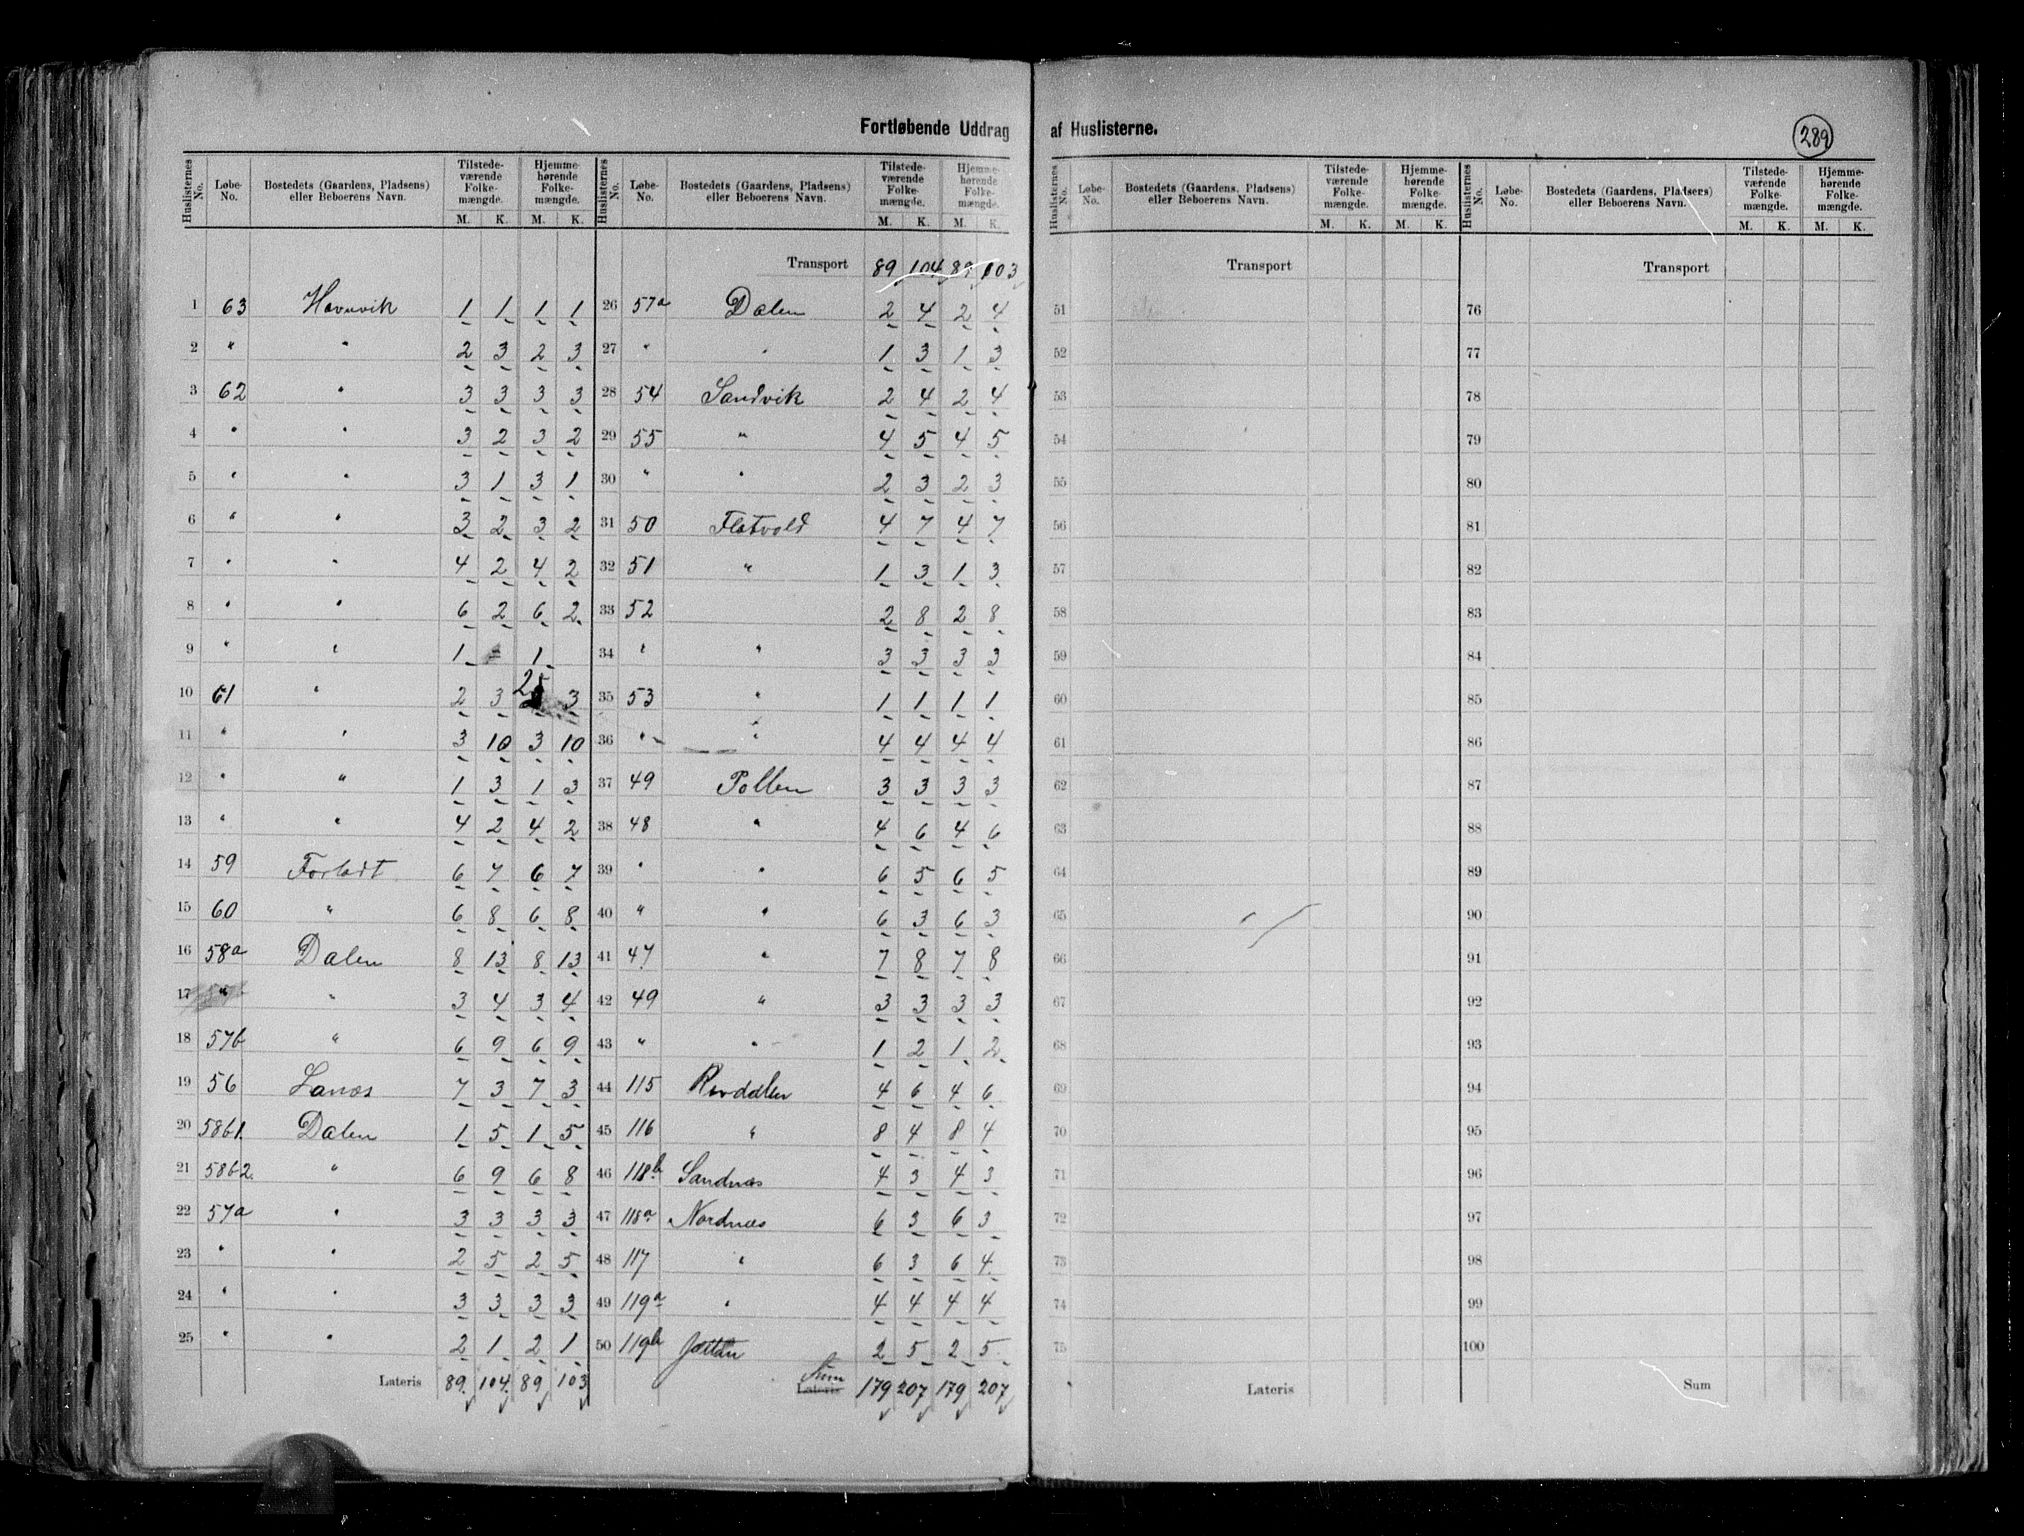 Fortløbende Uddrag af Huslisterne.
289
Huslisternes No. Løbe-No. Bostedets (Gaardens, Pladsens) eller Beboerens Navn. Tilstedeværende Folkemængde. M. K. Hjemmehørende Folkemængde. M. K.
1 63 Havnvik 1 1 1 1
2 " " 2 3 2 3
3 62 " 3 3 3 3
4 " " 3 2 3 2
5 " " 3 1 3 1
6 " " 3 2 3 2
7 " " 4 2 4 2
8 " " 6 2 6 2
9 " " 1 1
10 61 " 2 3 2 3
11 " " 3 10 3 10
12 " " 1 3 1 3
13 " " 4 2 4 2
14 59 Forladt 6 7 6 7
15 60 " 6 8 6 8
16 58a Dalen 8 13 8 13
17 " " 3 4 3 4
18 57b " 6 9 6 9
19 56 Lanæs 7 3 7 3
20 58b1. Dalen 1 5 1 5
21 58b2. " 6 9 6 8
22 57a " 3 3 3 3
23 " " 2 5 2 5
24 " " 3 3 3 3
25 " " 2 1 2 1
Lateris 89 104 89 103
Huslisternes No. Løbe-No. Bostedets (Gaardens, Pladsens) eller Beboerens Navn. Tilstedeværende Folkemængde. M. K. Hjemmehørende Folkemængde. M. K.
Transport 89 104 89 103
26 57a Dalen 2 4 2 4
27 " " 1 3 1 3
28 54 Sandvik 2 4 2 4
29 55 " 4 5 4 5
30 " " 2 3 2 3
31 50 Flatvold 4 7 4 7
32 51 " 1 3 1 3
33 52 2 8 2 8
34 " " 3 3 3 3
35 53 " 1 1 1 1
36 " " 4 4 4 4
37 49 Pollen 3 3 3 3
38 48 " 4 6 4 6
39 " " 6 5 6 5
40 " " 6 3 6 3
41 47 " 7 8 7 8
42 49 " 3 3 3 3
43 " " 1 2 1 2
44 115 Revdalen 4 6 4 6
45 116 " 8 4 8 4
46 118b Sandnæs 4 3 4 3
47 118a Nordnæs 6 3 6 3
48 117 " 6 3 6 4
49 119a " 4 4 4 4
50 119b 2 5 2 5
Sum
Lateris 179 207 179 207
Huslisternes No. Løbe-No. Bostedets (Gaardens, Pladsens) eller Beboerens Navn. Tilstedeværende Folkemængde. M. K. Hjemmehørende Folkemængde. M. K.
Transport
51
52
53
54
55
56
57
58
59
60
61
62
63
64
65
66
67
68
69
70
71
72
73
74
75
Lateris
Huslisternes No. Løbe-No. Bostedets (Gaardens, Pladsens) eller Beboerens Navn. Tilstedeværende Folkemængde. M. K. Hjemmehørende Folkemængde. M. K.
Transport
76
77
78
79
80
81
82
83
84
85
86
87
88
89
90
91
92
93
94
95
96
97
98
99
100
Sum